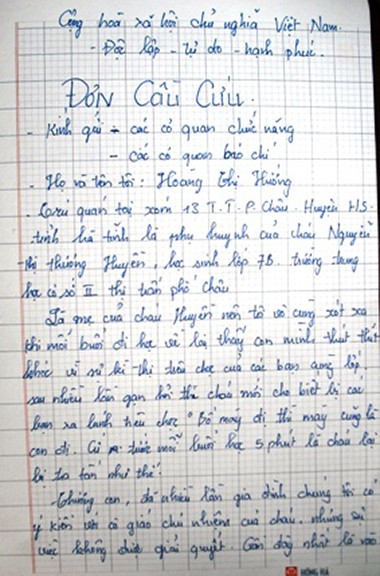 Cộng hoà xã hội chủ nghĩa Việt Nam.
- Độc lập - tự do - hạnh phúc.
ĐƠN CẦU CỨU.
- Kính gửi - các cơ quan chức năng
- các cơ quan báo chí
- Họ và tên tôi: Hoàng Thị Hường
- Cư quán tại xóm 13 T.T.P. Châu. Huyện HS.
tỉnh hà tĩnh là phụ huynh của cháu Nguyễn
Thị thương Huyền, học sinh lớp 7B trường trung
học cơ sở II thị trấn phố Châu
Là mẹ của cháu Huyền nên tôi vô cùng xót xa
khi mỗi buổi đi học về lại thấy con mình thút thít
khóc vì sự kì thị trêu chọc của các bạn cùng lớp.
sau nhiều lần gạn hỏi thì cháu mới cho biết bị các
bạn ra hình trêu chọc "Bố mày đi thì mày cũng là
con đi. Cứ trước mỗi buổi học 5 phút là cháu lại
bị tra tấn như thế!
Thương con, đã nhiều lần gia đình chúng tôi có
ý kiến với cô giáo chủ nhiệm của cháu. nhưng sự
việc không được giải quyết. Gần đây nhất là vào
HỒNG HÀ